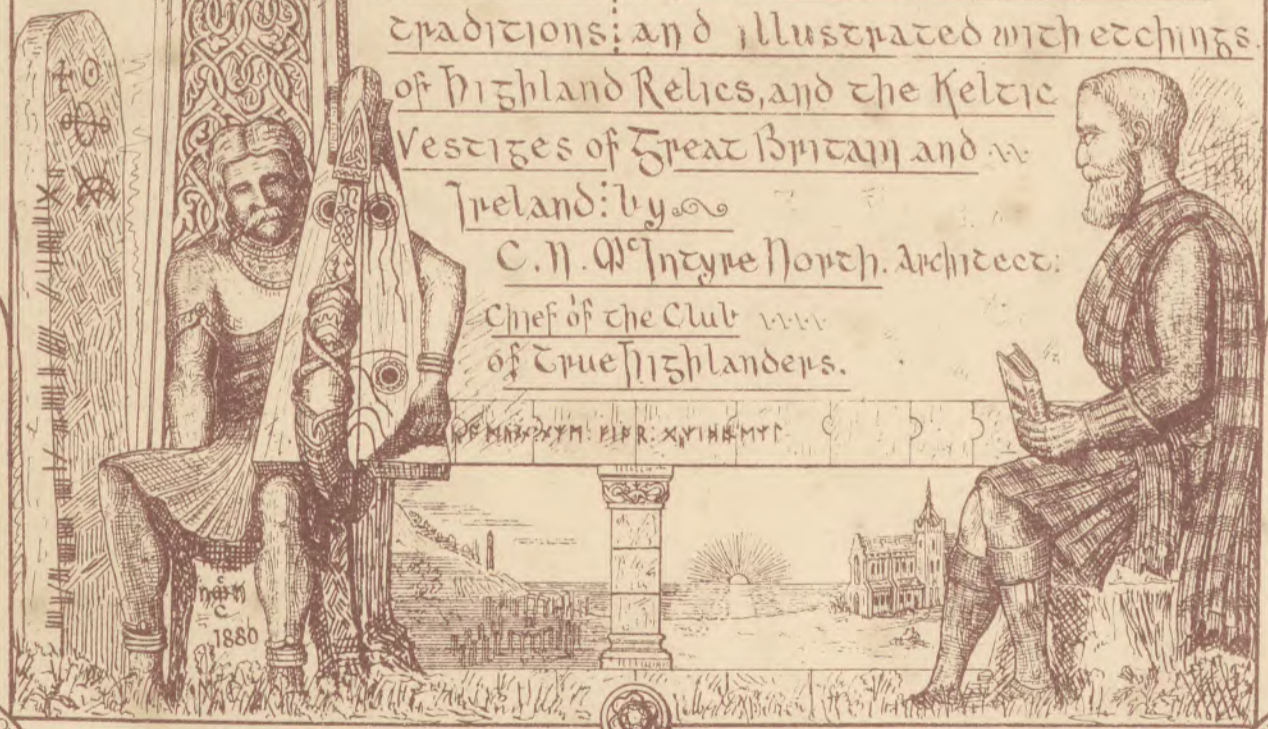 traditions: and illustrated with etchings
of Highland Relics, and the Keltic
Vestiges of Great Britain and
Ireland: by
C. N. McIntyre North. Architect:
Chief of the Club
of True Highlanders.
1880